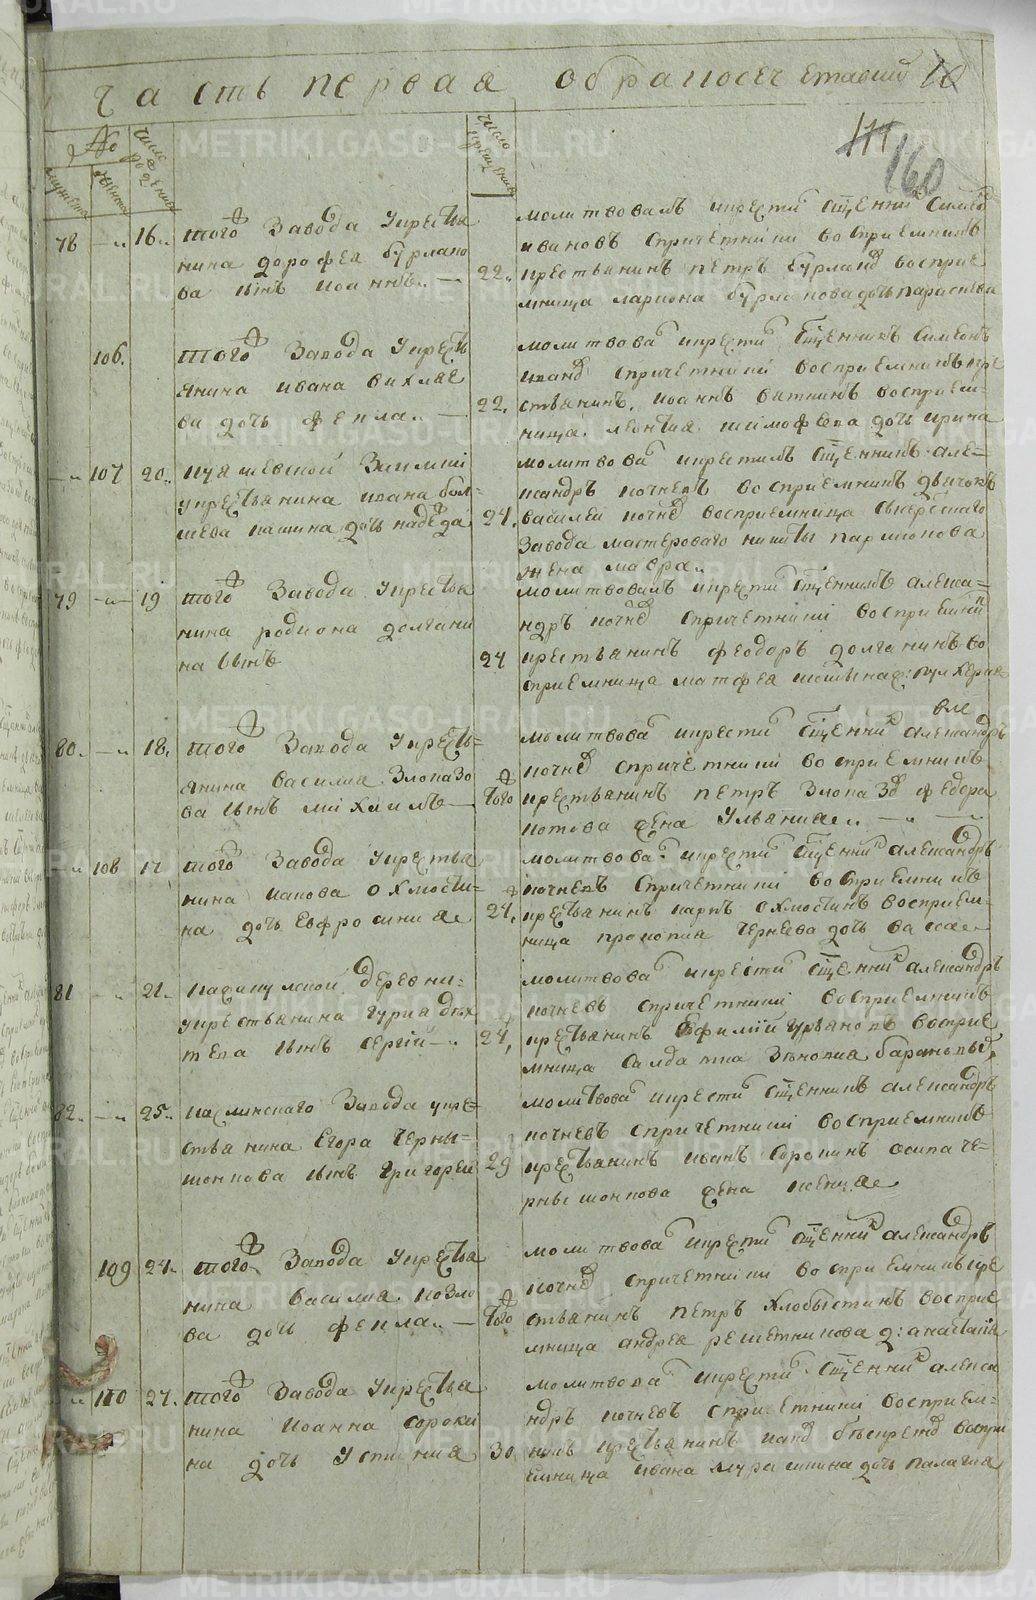 METRIKI.GASO-URAL.RU
часть первая
10
111
160
№
число рождения
число крещения
78 16 того завода крестья
нина дорофея бурлако
ва сынъ иоаннъ
22
молитвовалъ и крести с̃щенникъ симео
ивановъ с причетники восприемникъ
крестьянинъ петръ бурлаков восприе
мница лариона бурлакова дочь параскева
106 того завода крестья
янина ивана вихляе
ва дочь фекла
22
молитвова и крести с̃щенникъ симеонъ
иванов с причетники восприемникъ кре
стьянинъ иоаннъ восприем=
ница леонтия тимофеева дочь ирина
107 20 заимки
крестьянина ивана бол=
шева дочь надежда
24
молитвова и крестилъ с̃щенникъ алек=
сандръ почневъ восприемникъ дьячокъ
василей почнев восприемница сысерскаго
завода мастероваго никиты
жена мавра
79 19 того завода крестья
нина родиона долгани
на сынъ
24
молитвовалъ и крести с̃щенникъ алекса=
ндръ почнев с причетники восприемни
крестьянинъ феодоръ долганинъ во
сприемница матфея
80 18 того завода кресть=
янина василия злоказо
ва сынъ михаилъ
того
молитвова и крести с̃щенни александръ
почнев с причетники восприемникъ
крестьянинъ петръ злоказов федора
котова жена ульяния
108 17 того завода крестья
нина иакова охлюсти=
на дочь евфросиния
24
молитвова и крести с̃щенни александръ
почневъ с причетники восприемникъ
крестьянинъ карпъ охлюстинъ восприем=
ница прокопия дочь васса
81 21 деревни
крестьянина гурия дех
тева сынъ сергий
24
молитвова и крести с̃щенни александръ
почневъ с причетники восприемникъ
крестьянинъ ефимий гурьановъ восприе
мница салдатка
82 25 каслинскаго завода кре=
стьянина егора черны=
шонкова сынъ григорей
29
молитвова и крести с̃щенникъ александръ
почневъ с причетники восприемникъ
крестьянинъ иванъ сорокинъ осипа че=
рнышонкова жена ксения
109 24 того завода крестья
нина василия козло
ва дочь фекла
того
молитвова и крести с̃щенни александръ
почнев с причетники восприемникъ кре
стьянинъ петръ хлобыстинъ восприе
мница андрея решетникова д: анастасия
110 27 того завода крестья
нина иоанна сороки
на дочь устиния
30
молитвова и крести с̃щенни алекса
ндръ почневъ с причетники восприем=
никъ крестьянинъ воспри
емница ивана дочь палагия